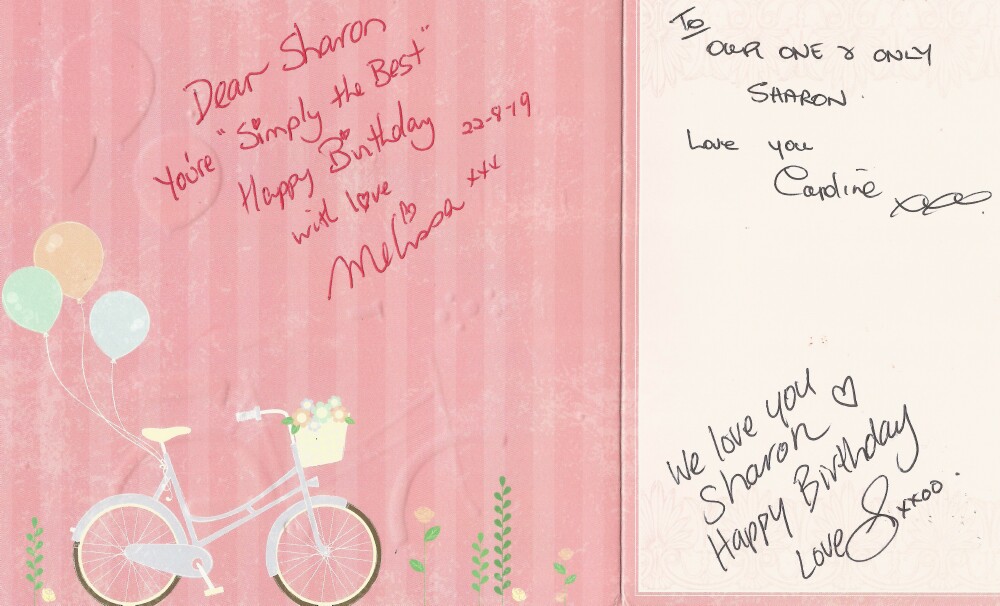 Dear Sharon
You're "Simply the Best"
Happy Birthday 22-8-19
with love
Melissa xxx
To
OUR ONE & ONLY
SHARON.
Love you
Caroline xxxx
We love you ♡
Sharon
Happy Birthday
Love S xxoo.